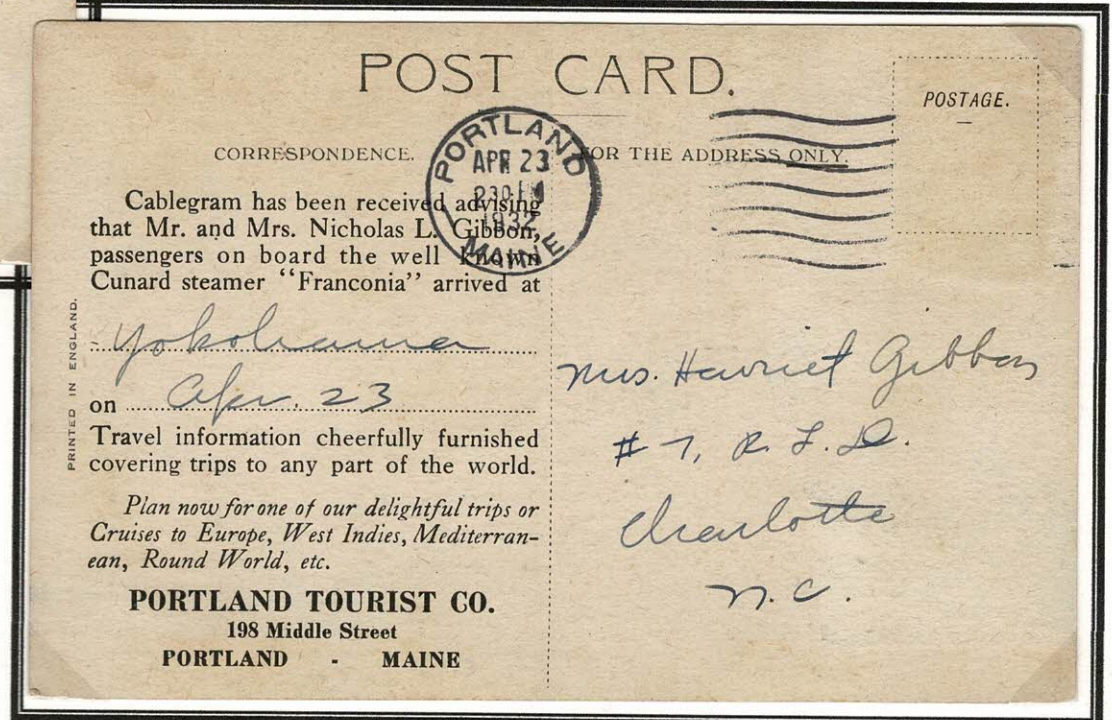 POST CARD.
POSTAGE.
CORRESPONDENCE.
FOR THE ADDRESS ONLY.
PORTLAND
APR 23
230 PM
1932
MAINE
Cablegram has been received advising
that Mr. and Mrs. Nicholas L. Gibbon,
passengers on board the well known
Cunard steamer "Franconia" arrived at
Yokohama
on Apr. 23
Travel information cheerfully furnished
covering trips to any part of the world.
Plan now for one of our delightful trips or
Cruises to Europe, West Indies, Mediterran-
ean, Round World, etc.
PORTLAND TOURIST CO.
198 Middle Street
PORTLAND - MAINE
PRINTED IN ENGLAND.
Mrs. Harriet Gibbon
# 7, R. F. D.
Charlotte
N. C.